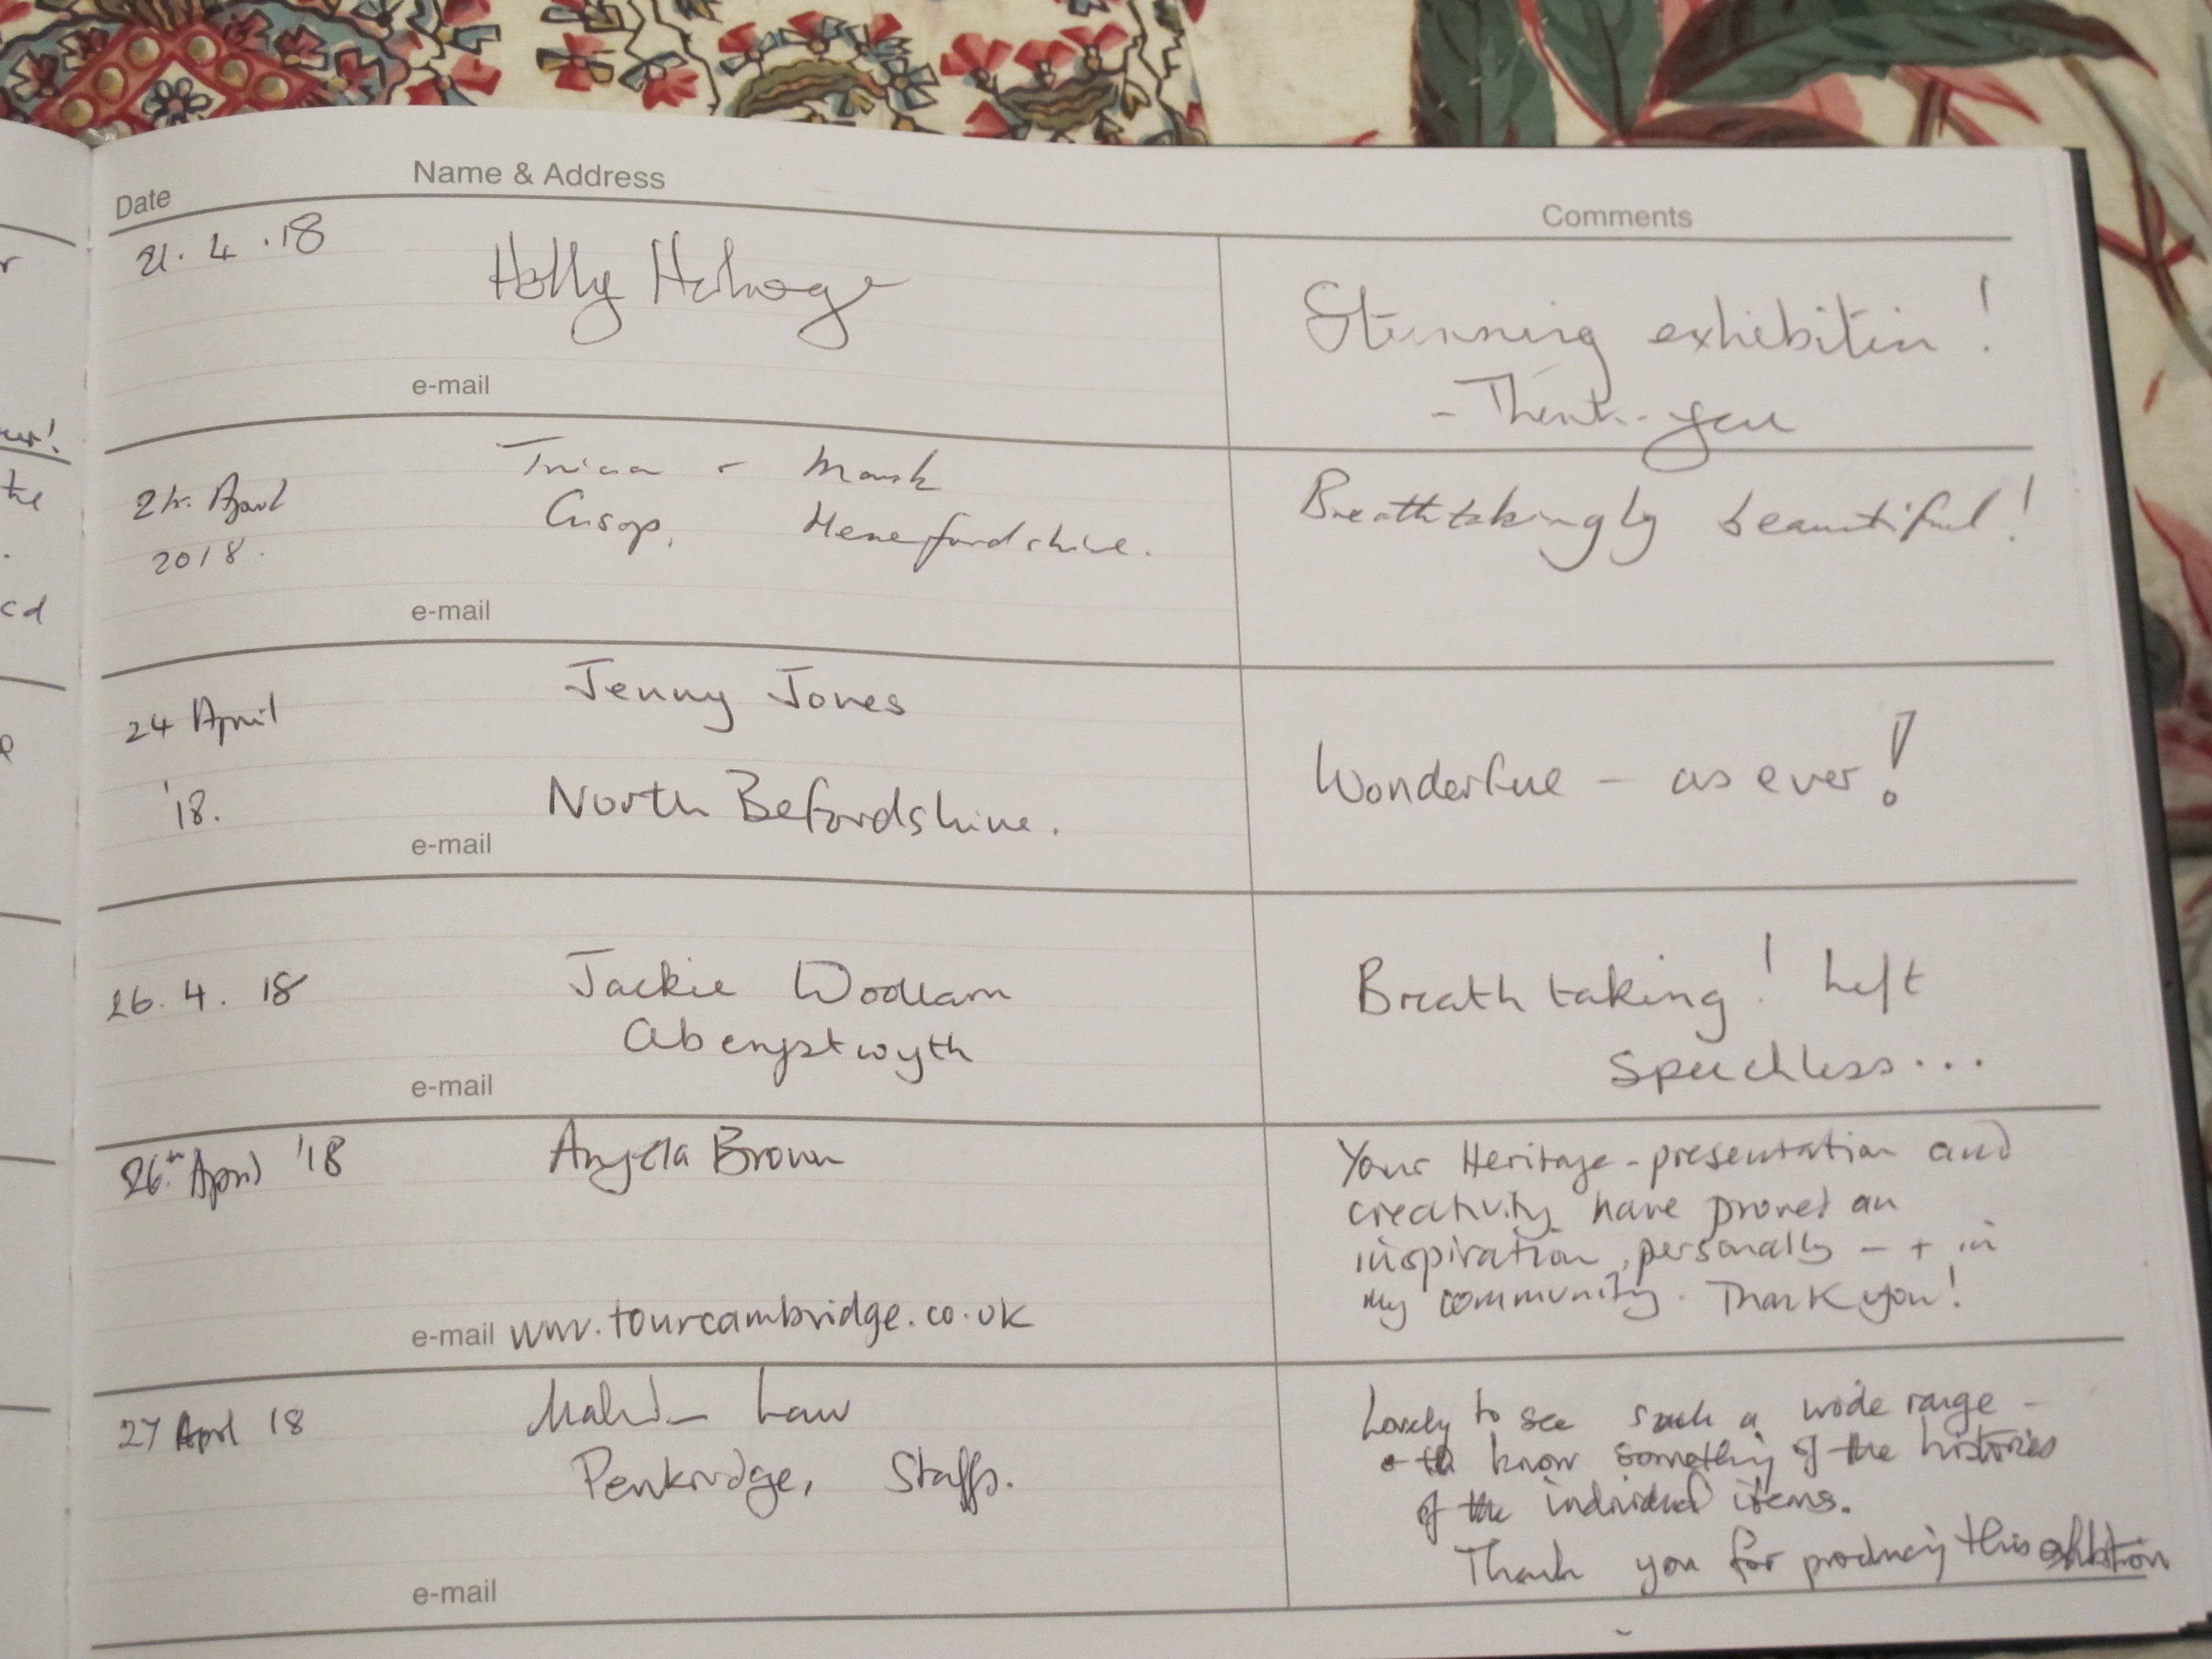 Date Name & Address Comments
21. 4 .18 Holly
Stunning exhibition!
- Thank-you
e-mail
April & Mark
2018. Cusop, Herefordshire.
Breathtakingly beautiful!
e-mail
24 April Jenny Jones
'18. North Befordshire.
Wonderful - as ever!
e-mail
26. 4. 18 Jackie Woollam
Aberystwyth
Breath taking! Left
speechless...
e-mail
26th April '18 Angela Brown
Your Heritage - presentation and
creativity have proved an
inspiration, personally - + in
my community. Thank you!
e-mail www.tourcambridge.co.uk
27 April 18 Law
Penkridge, Staffs.
Lovely to see such a wide range -
know something of the histories
of the individual items.
Thank you for producing this exhibition
e-mail
ver!
the
cd